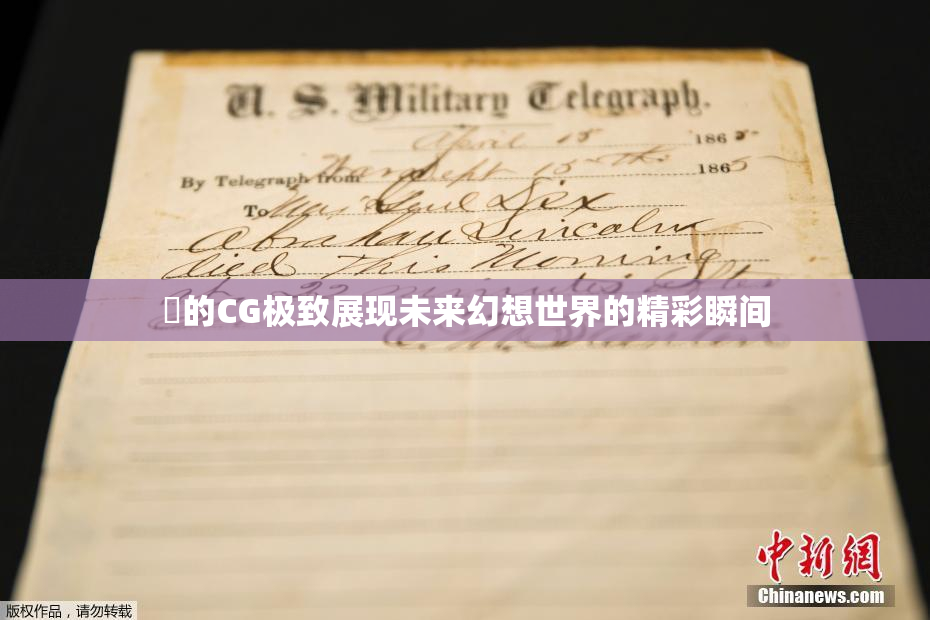 U. S. Military Telegraph.
April 15 1865
By Telegraph from War Dept 15th 1865
To Maj Genl Dix
Abraham Lincoln
died This Morning
at 22 minutes after
的CG极致展现未来幻想世界的精彩瞬间
E. M. Stanton
中新网
Chinanews.com
版权作品，请勿转载